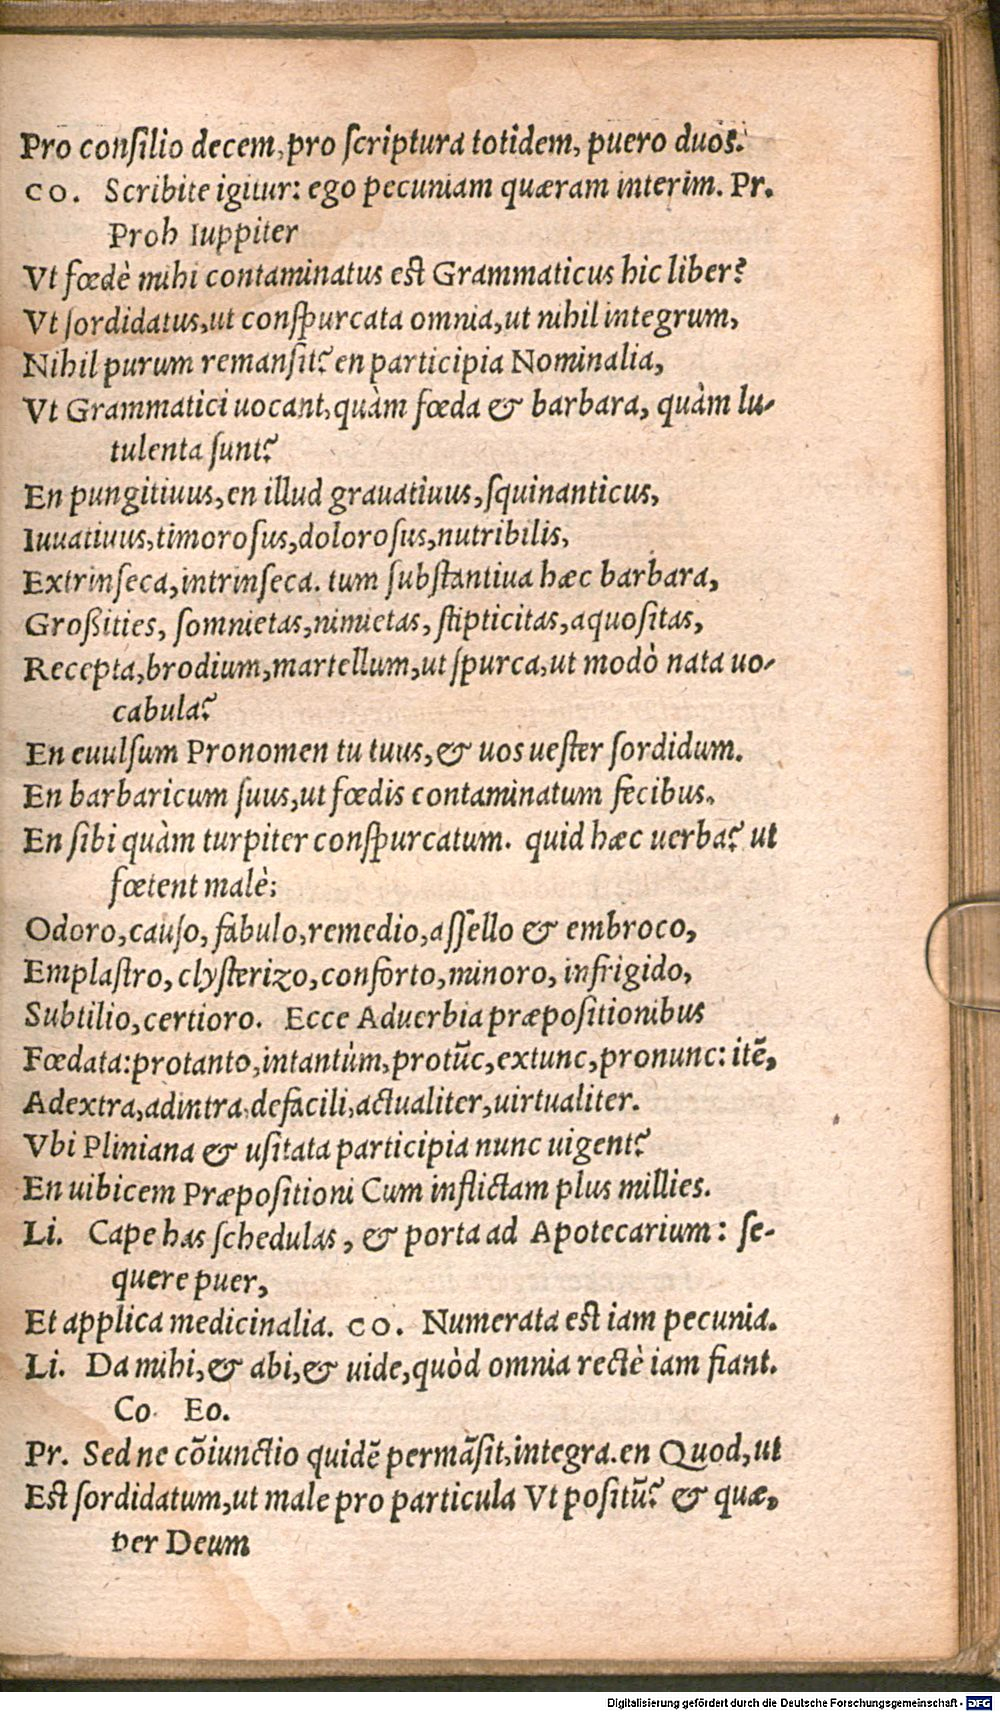 Pro consilio decem, pro scriptura totidem, puero duos.
CO. Scribite igitur: ego pecuniam quæram interim. Pr.
Proh Iuppiter
Vt fœdè mihi contaminatus est Grammaticus hic liber?
Vt sordidatus, ut conspurcata omnia, ut nihil integrum,
Nihil purum remansit? en participia Nominalia,
Vt Grammatici uocant, quàm fœda & barbara, quàm lu-
tulenta sunt?
En pungitiuus, en illud grauatiuus, squinanticus,
Iuuatiuus, timorosus, dolorosus, nutribilis,
Extrinseca, intrinseca. tum substantiua hæc barbara,
Großities, somnietas, nimietas, stipticitas, aquositas,
Recepta, brodium, martellum, ut spurca, ut modò nata uo-
cabula?
En euulsum Pronomen tu tuus, & uos uester sordidum.
En barbaricum suus, ut fœdis contaminatum fecibus.
En sibi quàm turpiter conspurcatum. quid hæc uerba? ut
fœtent malè:
Odoro, causo, fabulo, remedio, assello & embroco,
Emplastro, clysterizo, conforto, minoro, infrigido,
Subtilio, certioro. Ecce Aduerbia præpositionibus
Fœdata: protanto, intantùm, protũc, extunc, pronunc: itẽ,
Adextra, adintra, defacili, actualiter, uirtualiter.
Vbi Pliniana & usitata participia nunc uigent?
En uibicem Præpositioni Cum inflictam plus millies.
Li. Cape has schedulas, & porta ad Apotecarium: se-
quere puer,
Et applica medicinalia. CO. Numerata est iam pecunia.
Li. Da mihi, & abi, & uide, quòd omnia rectè iam fiant.
Co. Eo.
Pr. Sed ne cõiunctio quidẽ permãsit, integra. en Quod, ut
Est sordidatum, ut male pro particula Vt positũ? & quæ,
per Deum
Digitalisierung gefördert durch die Deutsche Forschungsgemeinschaft - DFG